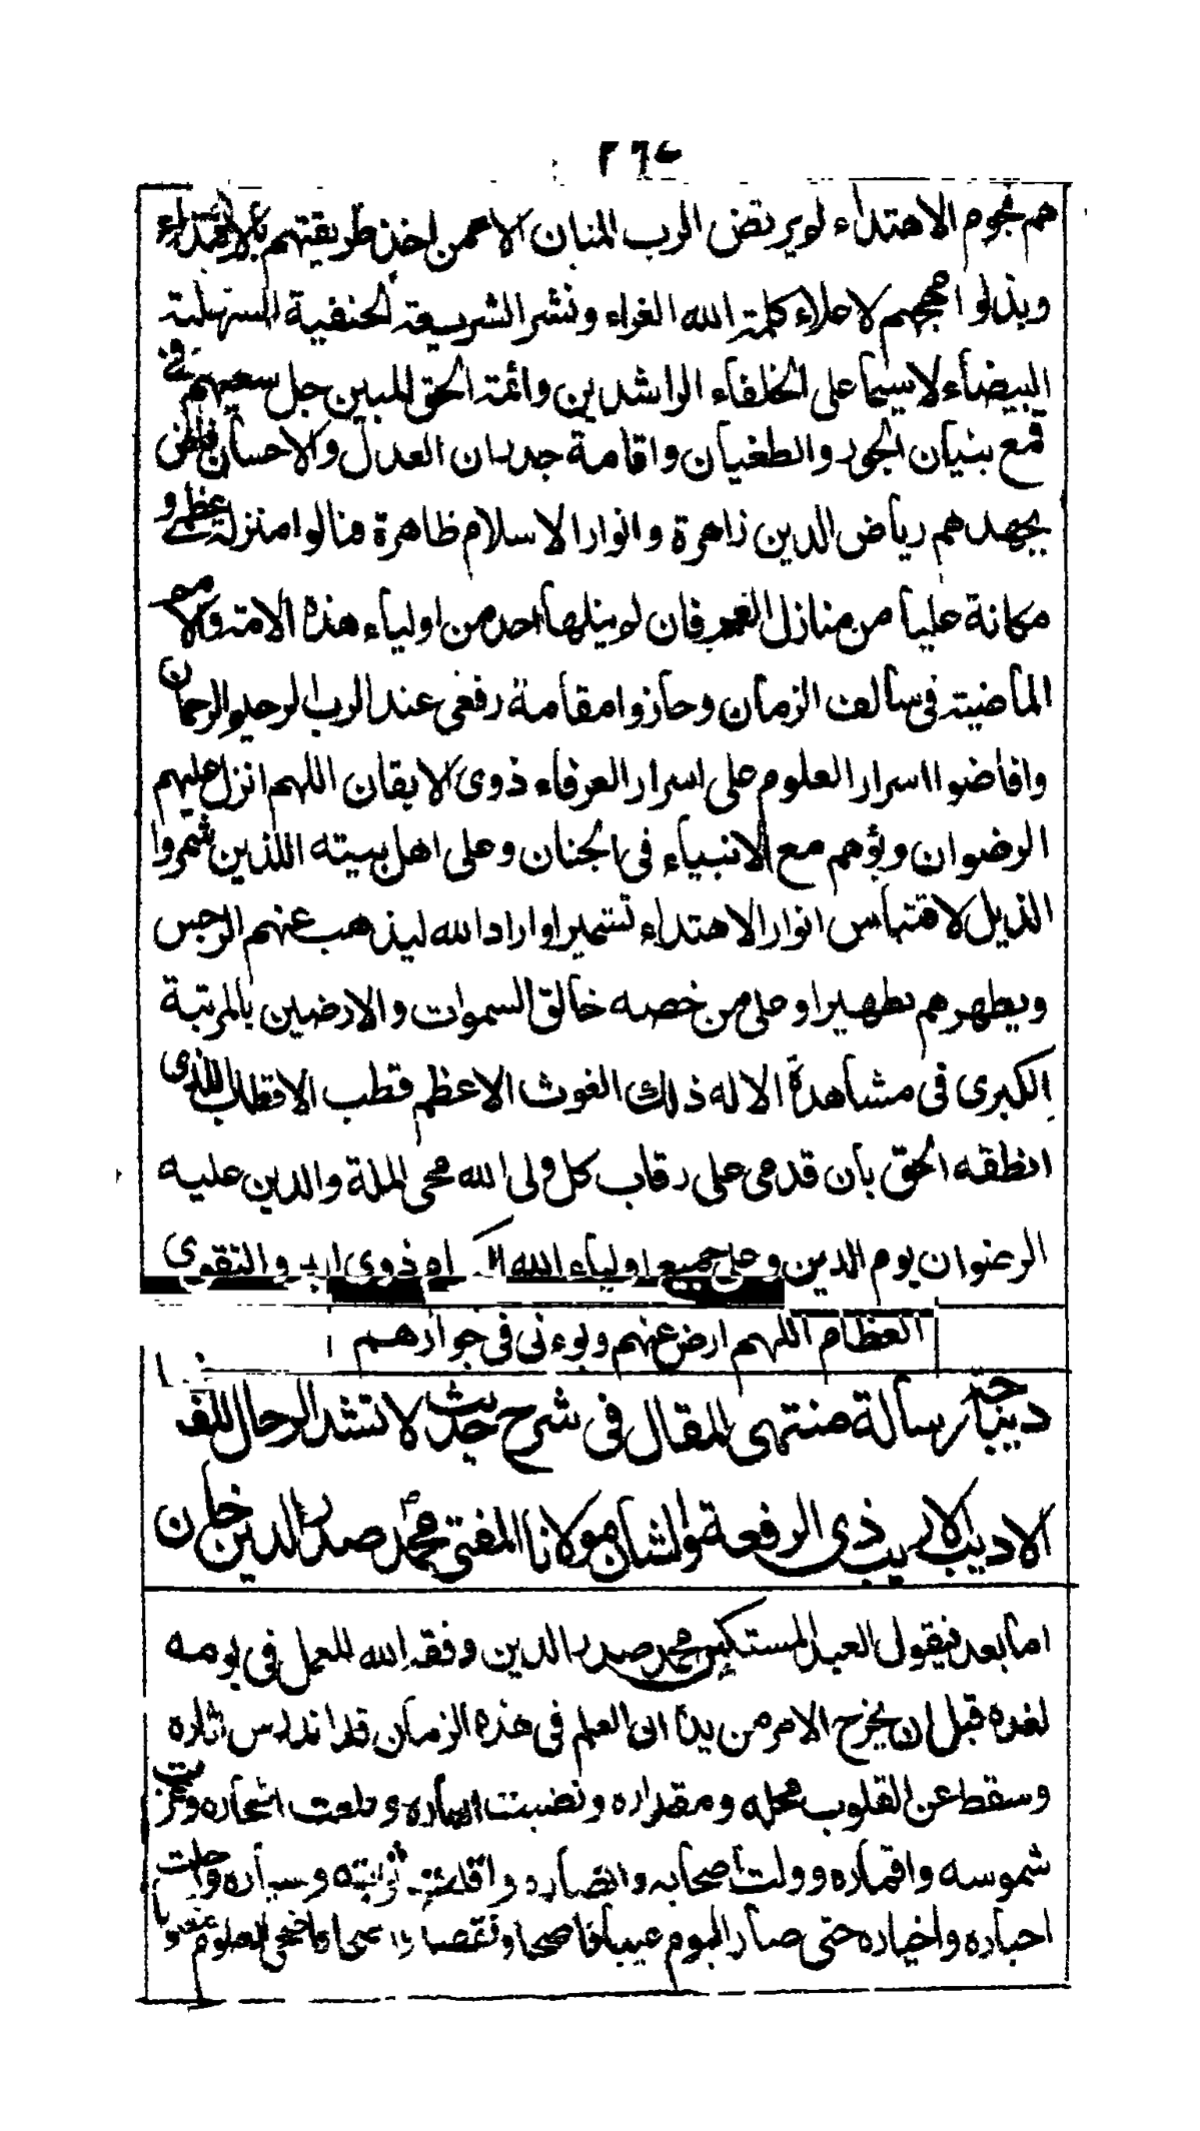 ٢٦٤
هم نجوم الاهتداء لم يرتض الرب المنان الا عمن اخذ طريقتهم بالاقتداء
وبذلوا مهجهم لاعلاء كلمة الله الغراء ونشر الشريعة الحنفية السهلة
البيضاء لاسيما على الخلفاء الراشدين وائمة الحق المبين جل سعيهم في
قمع بنيان الجور والطغيان واقامة جدران العدل والاحسان
بجهدهم رياض الدين زاهرة وانوار الاسلام ظاهرة فنالوا منزلة عظمى و
مكانة عليا من منازل العرفان لم ينلها احد من اولياء هذه الامة والامم
الماضية فى سالف الزمان وحازوا مقامة رفعى عند الرب الرحيم الرحمان
وافاضوا اسرار العلوم على اسرار العرفاء ذوى الايقان اللهم انزل عليهم
الرضوان وبؤهم مع الانبياء فى الجنان وعلى اهل بيته اللذين شمروا
الذيل لاقتباس انوار الاهتداء تشميرا واراد الله ليذهب عنهم الرجس
ويطهرهم تطهيرا وعلى من خصه خالق السموات والارضين بالمرتبة
الكبرى فى مشاهدة الاله ذلك الغوث الاعظم قطب الاقطاب اللذى
انطقه الحق بان قدمى على رقاب كل ولى الله محى الملة والدين عليه
الرضوان يوم الدين وعلى جميع اولياء الله ذوى والتقوى
العظام اللهم ارض عنهم وبوءنى فى جوارهم
ديباجة رسالة منتهى المقال فى شرح حديث لاتشد الرحال للف
الاديب الاريب ذى الرفعة والشان مولانا المفتى محمد صدر الدين خان
اما بعد فيقول العبد المستكين محمد صدر الدين وفقه الله للعمل فى يومه
لغده قبل ان يخرج الامر من يده ان العلم فى هذه الزمان قد اندرس اثاره
وسقط عن القلوب محله ومقداره ونضبت انهاره و اشجاره وغربت
شموسه واقماره وولت اصحابه وانصاره و
احباره واخياره حتى صار اليوم عيبا فاضحا ونقصا العلوم